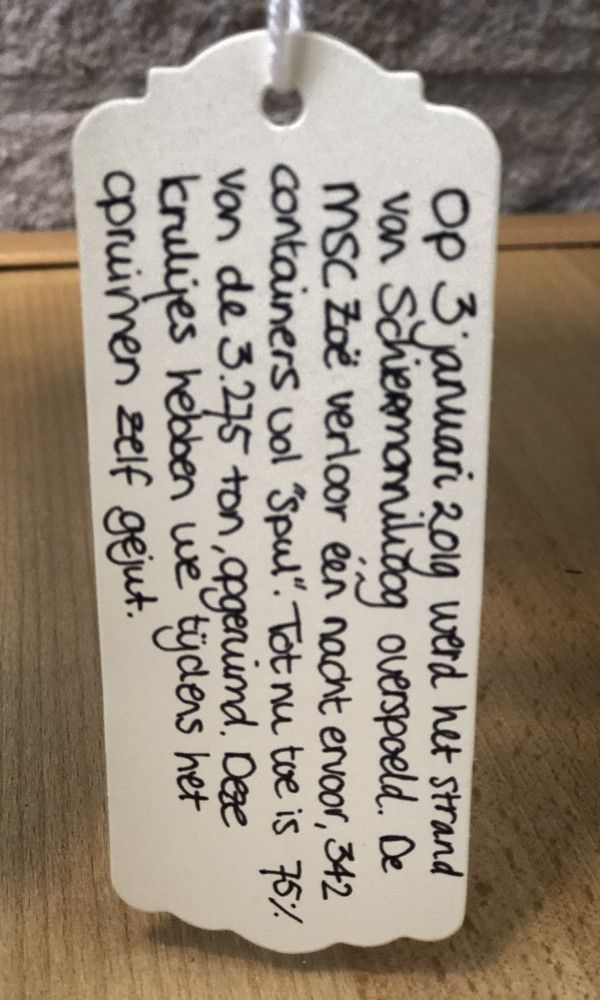 Op 3 januari 2019 werd het strand
van Schiermonnikoog overspoeld. De
MSC Zoë verloor één nacht ervoor, 342
containers vol "Spul". Tot nu toe is 75%
van de 3.275 ton, opgeruimd. Deze
krulijes hebben we tijdens het
opruimen zelf gejut.